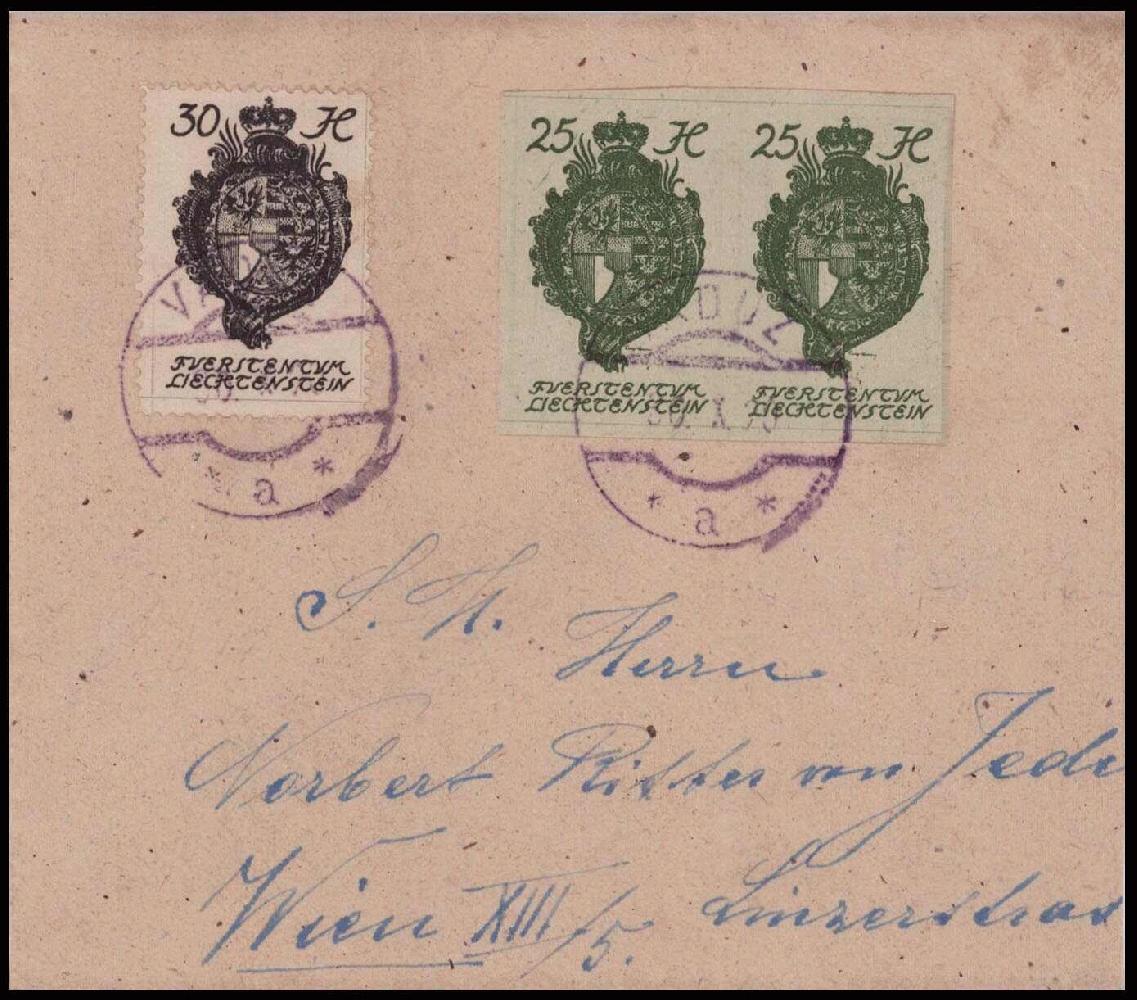 30 H
FVERSTENTVM
LIECHTENSTEIN
25 H 25 H
FVERSTENTVM FVERSTENTVM
LIECHTENSTEIN LIECHTENSTEIN
* a *
DUZ
X
* a *
S. H.
Herrn
Norbert Ritter von Jede
Wien XIII/5. Linzerstras